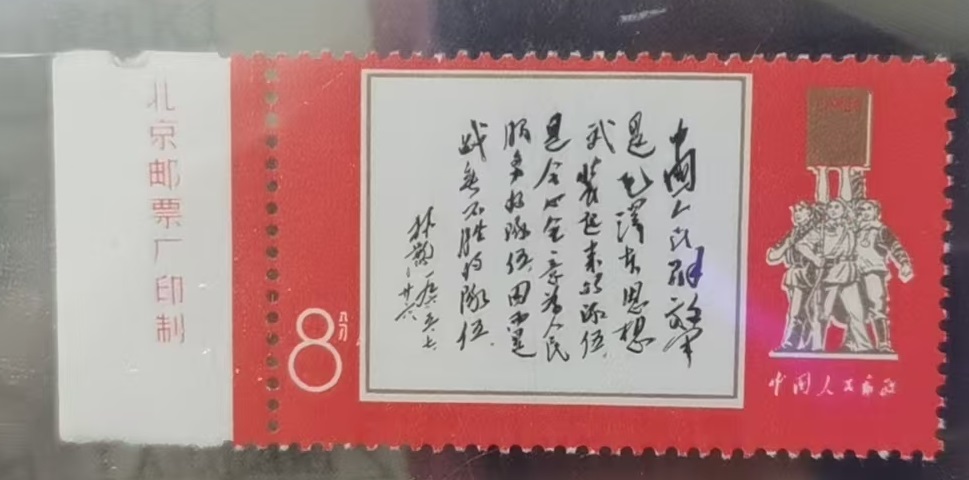 北京邮票厂印制
中國人民解放軍
是毛澤东思想
武裝起来的隊伍，
是全心全意为人民
服务的隊伍，因而是
战无不胜的隊伍。
林彪 一九六五、七、
廿六
8分
中国人民邮政